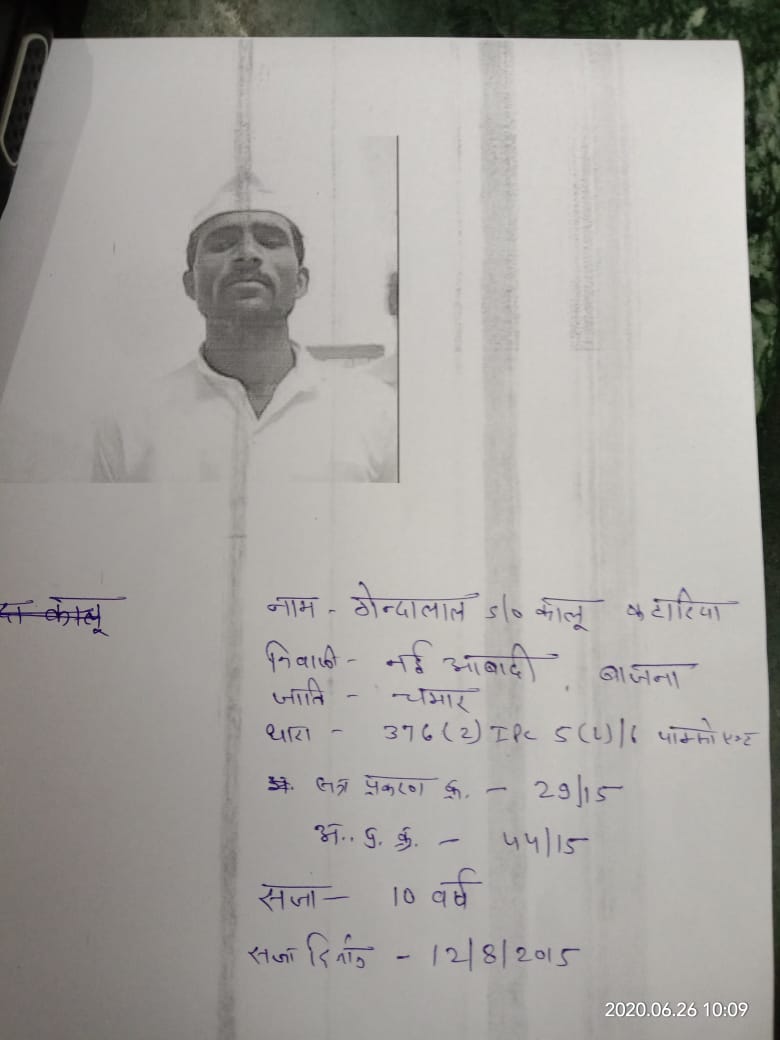 नाम - गेन्दालाल S/o कालू कटारिया
दा कालू
निवासी - नई आबादी, बाजना
जाति - चमार
धारा - 376(2) IPC 5(L)/6 पाक्सो एक्ट
सत्र प्रकरण क्र. - 29/15
अ. प्र. क्र. - 44/15
सजा - 10 वर्ष
सजा दिनांक - 12/8/2015
2020.06.26 10:09